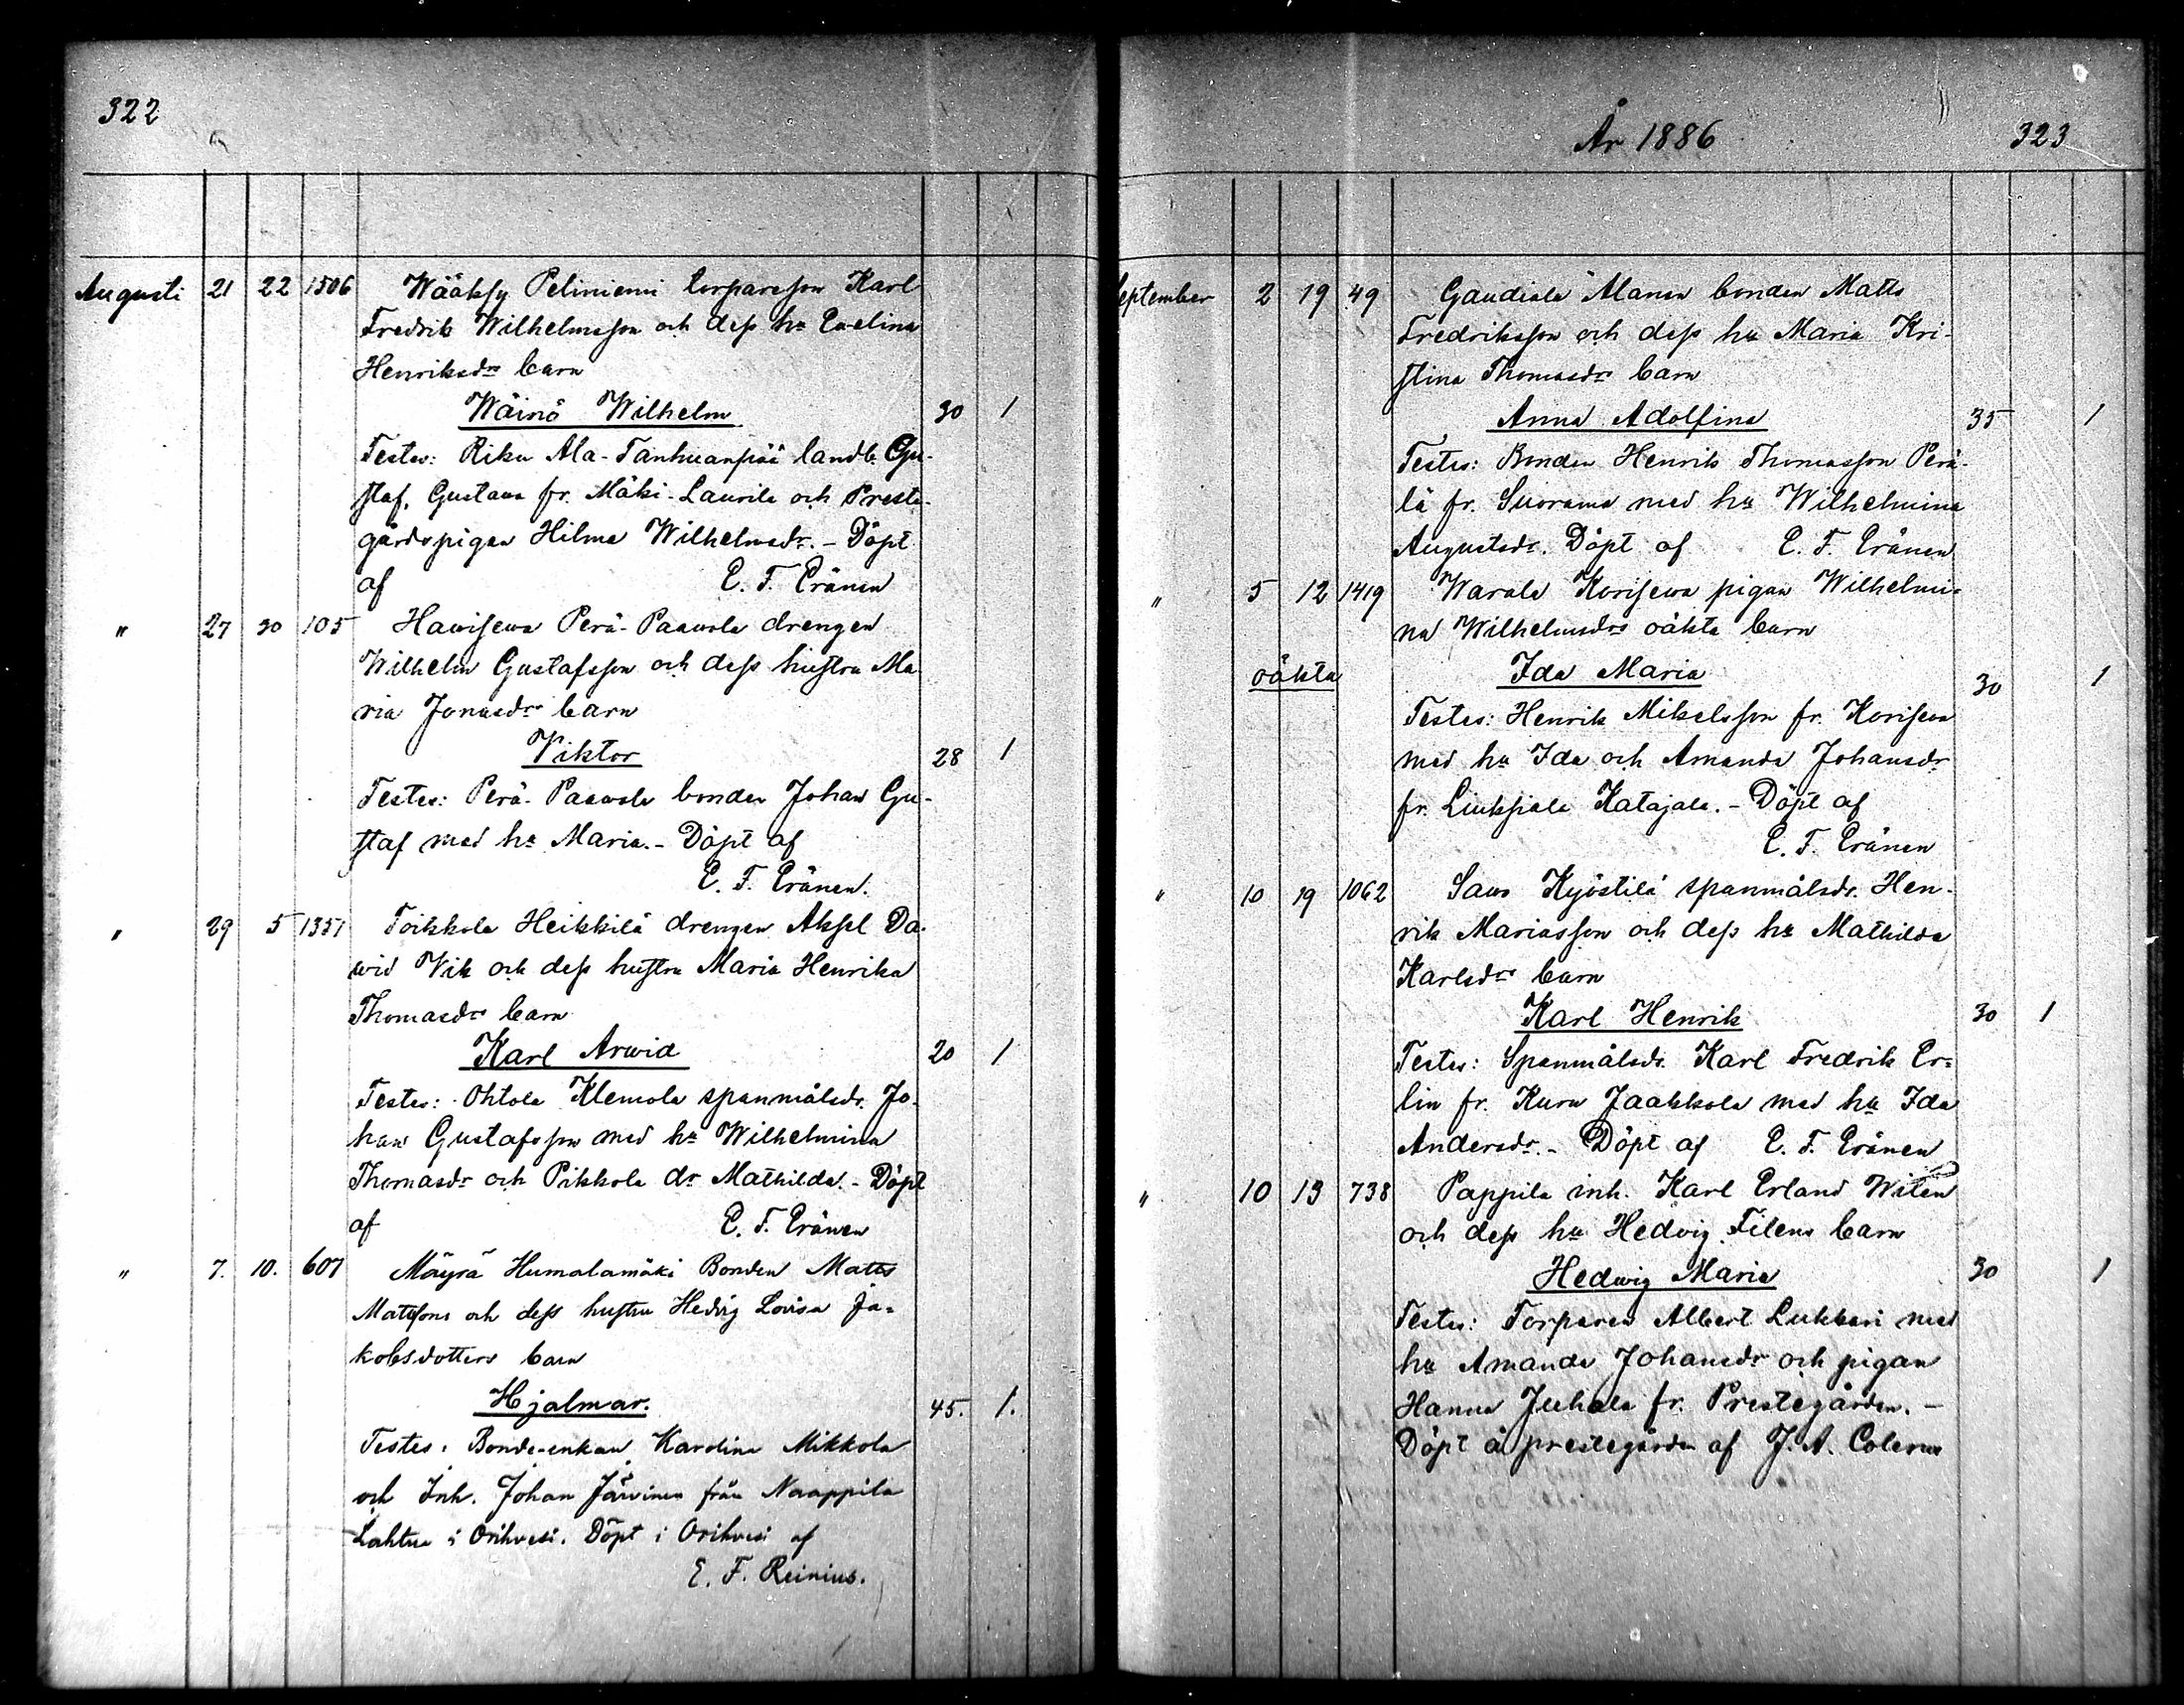 322
Augusti 21 22 1506 Wääksy Peliniemi torpareson Karl
Fredrik Wilhelmsson och dess hu Evelina
Henriksdrs barn
Wäinö Wilhelm 30 1
Testes: Riku Ala-Tanhuanpää landb. Gu-
staf, Gustava fr. Mäki-Laurila och Preste-
gårdspigan Hilma Wilhelmsdr. - Döpt
af E. F. Eränen
" 27 30 105 Hawisewa Perä-Paawola drengen
Wilhelm Gustafsson och dess hustru Ma
ria Jonasdrs barn
Viktor 28 1
Testes: Perä-Paawola bonden Johan Gu-
staf med hu Maria. - Döpt af
E. F. Eränen.
" 29 5 1351 Toikkola Heikkilä drengen Aksel Da-
wid Vik och dess hustru Maria Henrika
Thomasdrs barn
Karl Arwid 20 1
Testes: Ohtola Klemola spanmålsdr. Jo-
han Gustafsson med hu Wilhelmina
Thomasdr och Pikkola dr Mathilda. - Döpt
af E. F. Eränen
" 7. 10. 607 Mäyrä Humalamäki Bonden Matts
Mattsons och dess hustru Hedvig Lovisa Ja-
kobsdotters barn
Hjalmar. 45. 1.
Testes: Bonde-enkan Karolina Mikkola
och Inh. Johan Järvinen från Naappila
Lahtua i Orihvesi. Döpt i Orihvesi af
E. F. Reinius.
År 1886 323
September 2 19 49 Gaudiala Alanen bonden Matts
Fredriksson och dess hu Maria Kri-
stina Thomasdrs barn
Anna Adolfina 35 1
Testes: Bonden Henrik Thomasson Perä-
lä fr. Suorama med hu Wilhelmina
Augustsdr. Döpt af E. F. Eränen
" 5 12 1419 Warala Korisewa pigan Wilhelmi-
na Wilhelmsdrs oäkta barn
oäkta Ida Maria 30 1
Testes: Henrik Mikelsson fr. Korisewa
med hu Ida och Amanda Johansdr
fr. Liuksiala Katajala. - Döpt af
E. F. Eränen
" 10 19 1062 Saus Kyöstilä spanmålsdr. Hen-
rik Mariasson och dess hu Mathilda
Karlsdrs barn
Karl Henrik 30 1
Testes: Spanmålsdr. Karl Fredrik Er-
lin fr. Kuru Jaakkola med hu Ida
Andersdr. - Döpt af E. F. Eränen
" 10 13 738 Pappila inh. Karl Erland Witén
och dess hu Hedvig Filens barn
Hedwig Maria 30 1
Testes: Torparen Albert Lukkari med
hu Amanda Johansdr och pigan
Hanna Juhala fr. Prestegården. -
Döpt å prestegården af J. A. Colerus